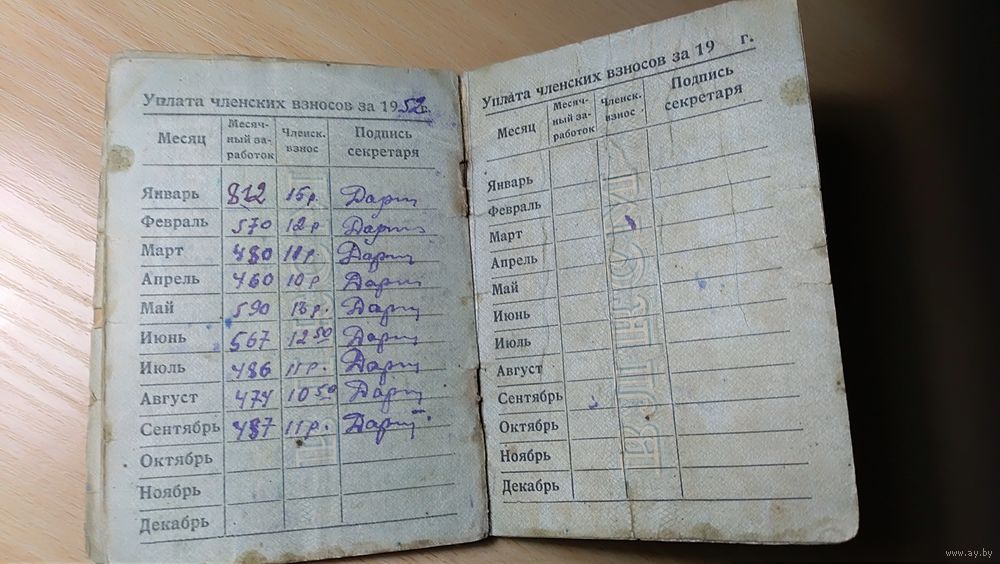 Уплата членских взносов за 1952 г.
Месяц Месяч-ный за-работок Членск. взнос Подпись секретаря
Январь 812 15 р.
Февраль 570 12 р
Март 480 11 р.
Апрель 460 10 р
Май 590 13 р.
Июнь 567 12 50
Июль 486 11 р.
Август 474 10 50
Сентябрь 487 11 р.
Октябрь
Ноябрь
Декабрь
Уплата членских взносов за 19 г.
Месяц Месяч-ный за-работок Членск. взнос Подпись секретаря
Январь
Февраль
Март
Апрель
Май
Июнь
Июль
Август
Сентябрь
Октябрь
Ноябрь
Декабрь
www.ay.by